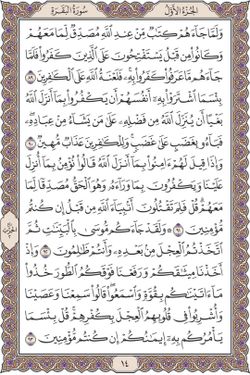 الجزء الأول سورة البقرة
وَلَمَّا جَآءَهُمْ كِتَٰبٌ مِّنْ عِندِ ٱللَّهِ مُصَدِّقٌ لِّمَا مَعَهُمْ
وَكَانُوا۟ مِن قَبْلُ يَسْتَفْتِحُونَ عَلَى ٱلَّذِينَ كَفَرُوا۟ فَلَمَّا
جَآءَهُم مَّا عَرَفُوا۟ كَفَرُوا۟ بِهِۦ فَلَعْنَةُ ٱللَّهِ عَلَى ٱلْكَٰفِرِينَ ٨٩
بِئْسَمَا ٱشْتَرَوْا۟ بِهِۦٓ أَنفُسَهُمْ أَن يَكْفُرُوا۟ بِمَآ أَنزَلَ ٱللَّهُ
بَغْيًا أَن يُنَزِّلَ ٱللَّهُ مِن فَضْلِهِۦ عَلَىٰ مَن يَشَآءُ مِنْ عِبَادِهِۦ
فَبَآءُو بِغَضَبٍ عَلَىٰ غَضَبٍ وَلِلْكَٰفِرِينَ عَذَابٌ مُّهِينٌ ٩٠
وَإِذَا قِيلَ لَهُمْ ءَامِنُوا۟ بِمَآ أَنزَلَ ٱللَّهُ قَالُوا۟ نُؤْمِنُ بِمَآ أُنزِلَ
عَلَيْنَا وَيَكْفُرُونَ بِمَا وَرَآءَهُۥ وَهُوَ ٱلْحَقُّ مُصَدِّقًا لِّمَا
مَعَهُمْ قُلْ فَلِمَ تَقْتُلُونَ أَنۢبِيَآءَ ٱللَّهِ مِن قَبْلُ إِن كُنتُم
مُّؤْمِنِينَ ٩١ وَلَقَدْ جَآءَكُم مُّوسَىٰ بِٱلْبَيِّنَٰتِ ثُمَّ
ٱتَّخَذْتُمُ ٱلْعِجْلَ مِنۢ بَعْدِهِۦ وَأَنتُمْ ظَٰلِمُونَ ٩٢ وَإِذْ
أَخَذْنَا مِيثَٰقَكُمْ وَرَفَعْنَا فَوْقَكُمُ ٱلطُّورَ خُذُوا۟
مَآ ءَاتَيْنَٰكُم بِقُوَّةٍ وَٱسْمَعُوا۟ قَالُوا۟ سَمِعْنَا وَعَصَيْنَا
وَأُشْرِبُوا۟ فِى قُلُوبِهِمُ ٱلْعِجْلَ بِكُفْرِهِمْ قُلْ بِئْسَمَا
يَأْمُرُكُم بِهِۦٓ إِيمَٰنُكُمْ إِن كُنتُم مُّؤْمِنِينَ ٩٣
١٤